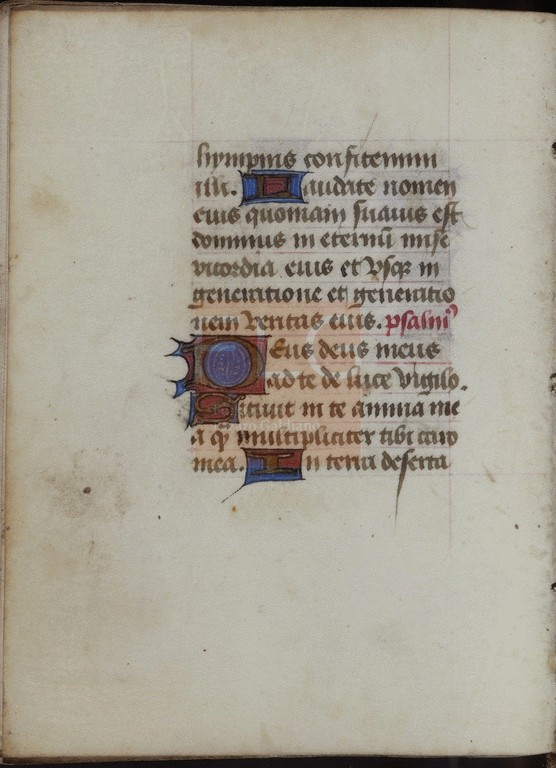 hympnis confitemini
illi. Laudate nomen
eius quoniam suauis est
dominus in eternū mise
ricordia eius et vsqꝫ in
generatione et generatio
nem veritas eius. psalmꝰ
Deus deus meus
ad te de luce vigilo.
Sitiuit in te anima me
a qͣ multipliciter tibi caro
mea. In terra deserta
Lázaro Galdiano